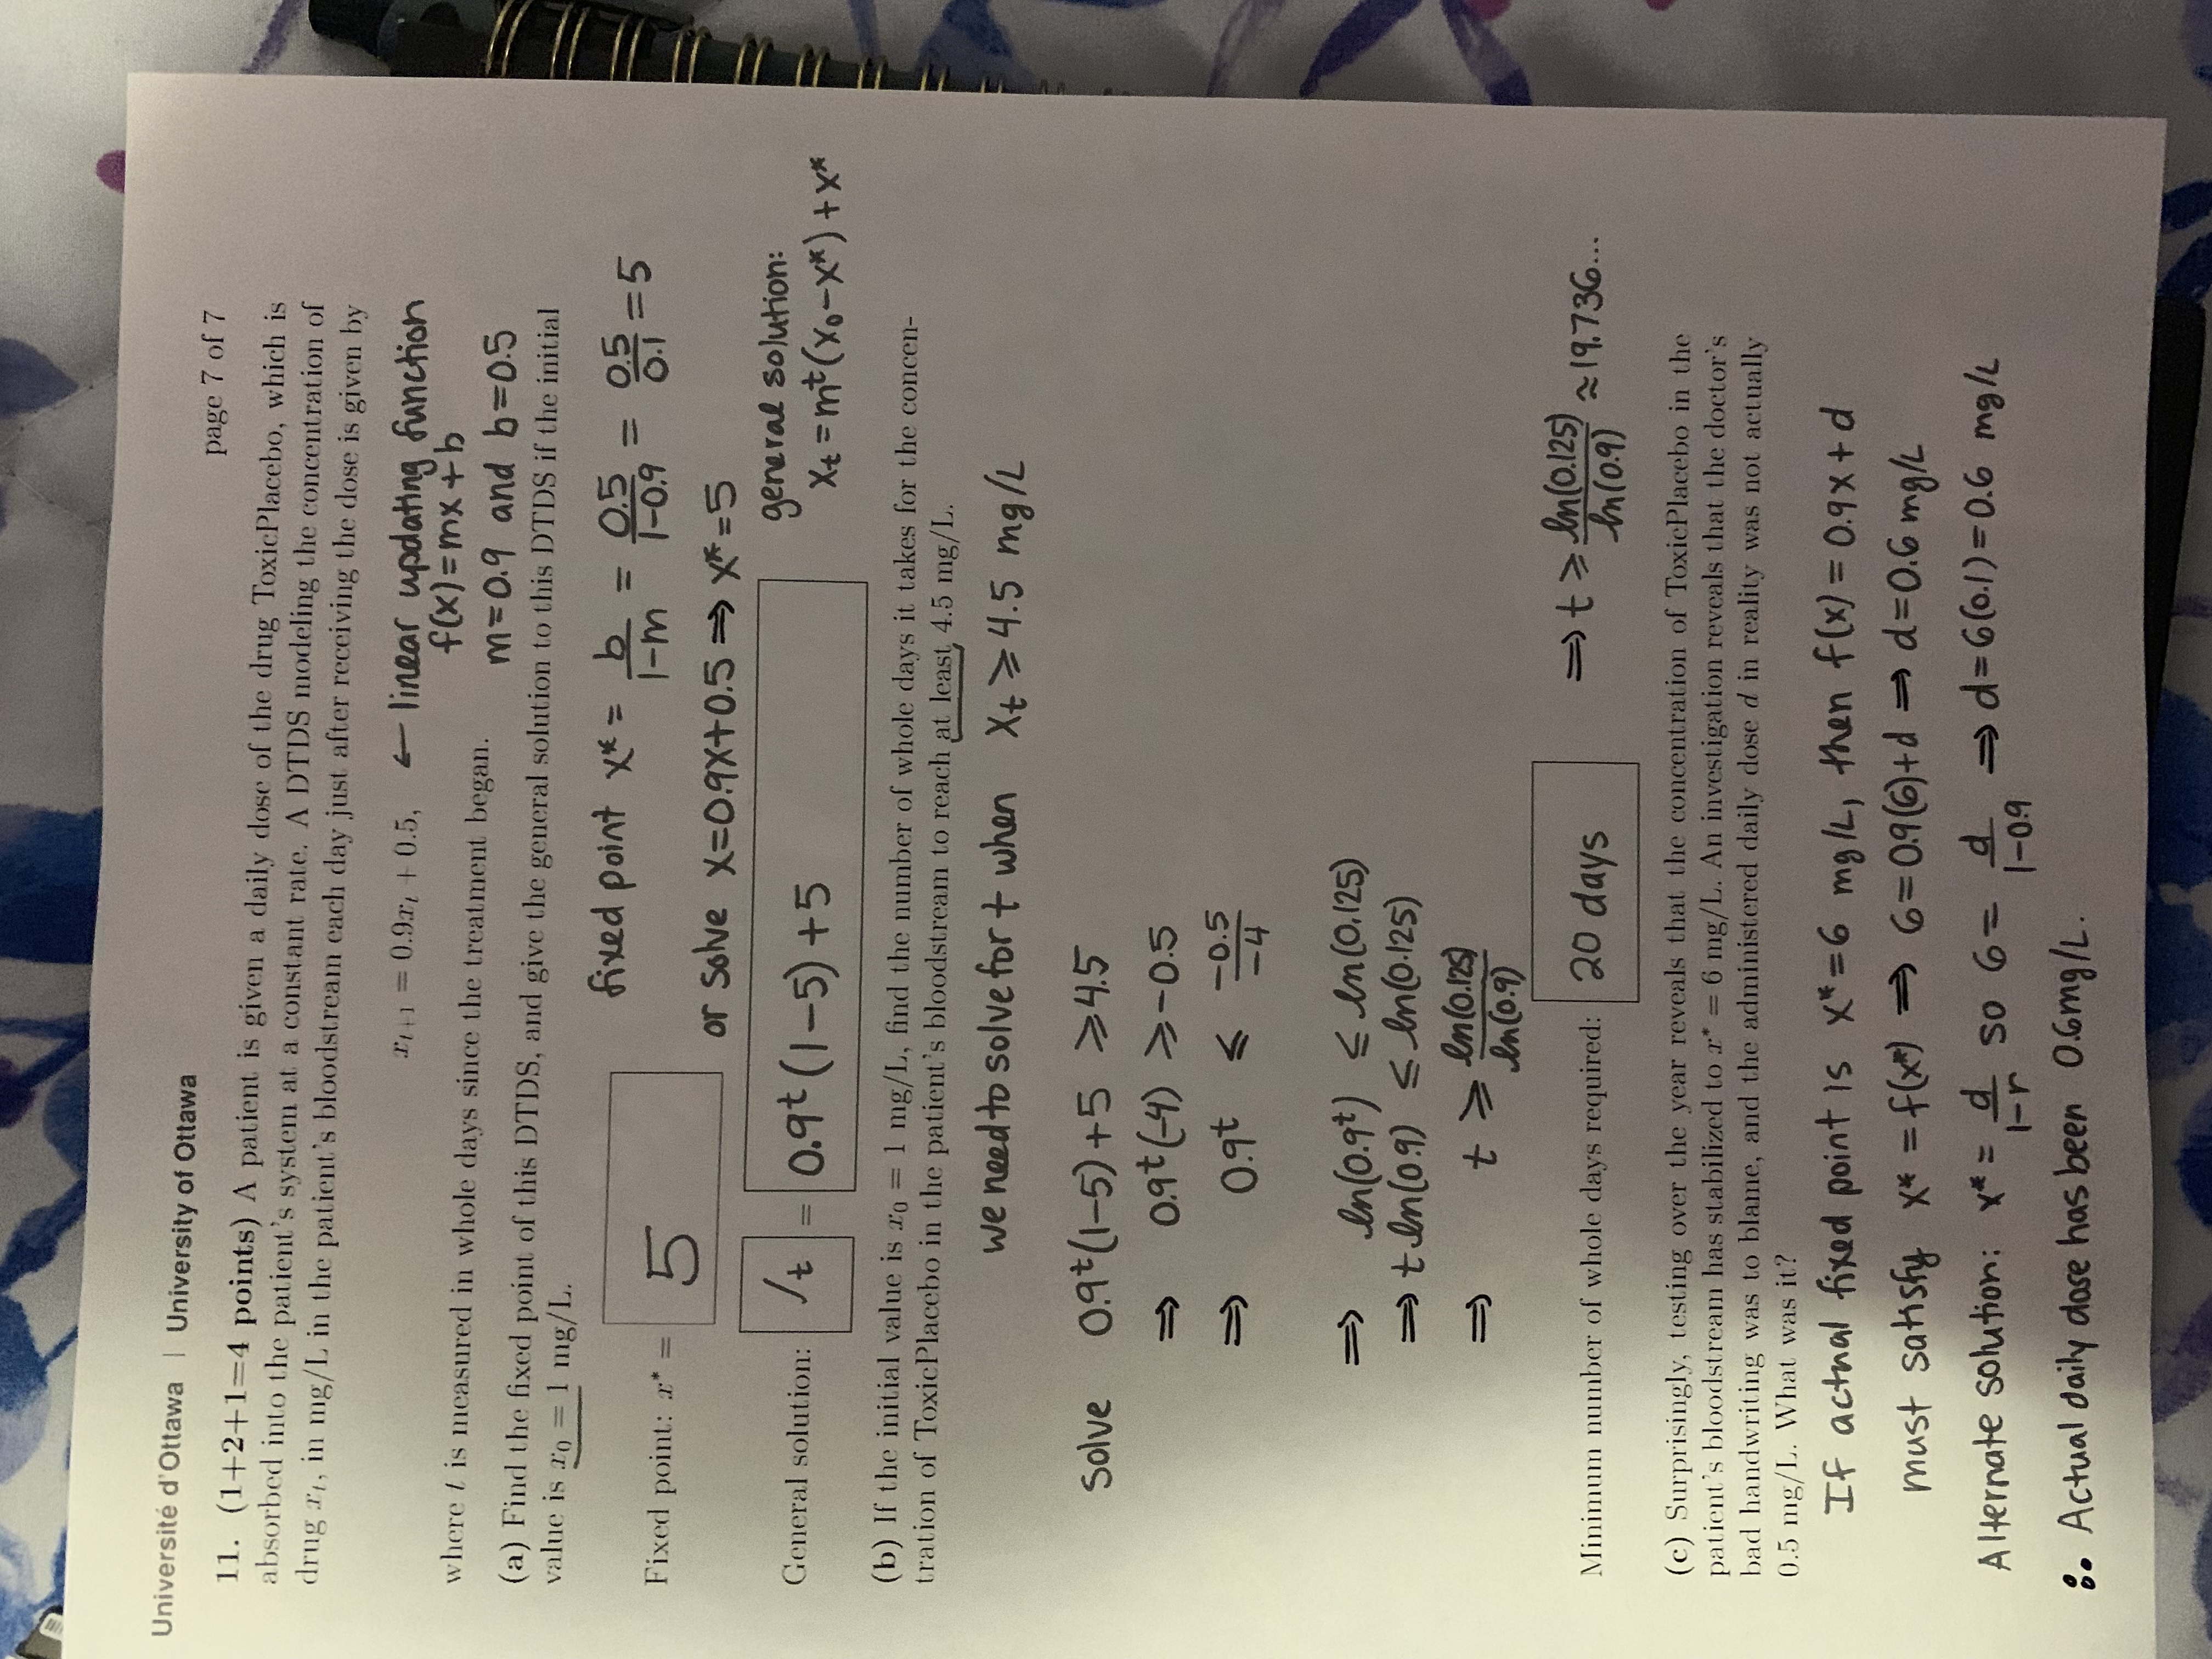 Université d'Ottawa | University of Ottawa
page 7 of 7
11. (1+2+1=4 points) A patient is given a daily dose of the drug ToxicPlacebo, which is
absorbed into the patient's system at a constant rate. A DTDS modeling the concentration of
drug xₜ, in mg/L in the patient's bloodstream each day just after receiving the dose is given by
xₜ₊₁ = 0.9xₜ + 0.5, ← linear updating function
f(x)=mx+b
m=0.9 and b=0.5
where t is measured in whole days since the treatment began.
(a) Find the fixed point of this DTDS, and give the general solution to this DTDS if the initial
value is x₀ = 1 mg/L.
fixed point x* = b/(1-m) = 0.5/(1-0.9) = 0.5/0.1 = 5
Fixed point: x* = 5
or solve x=0.9x+0.5 ⇒ x*=5
general solution:
xₜ = mᵗ(x₀-x*)+x*
General solution: t = 0.9ᵗ(1-5)+5
(b) If the initial value is x₀ = 1 mg/L, find the number of whole days it takes for the concen-
tration of ToxicPlacebo in the patient's bloodstream to reach at least 4.5 mg/L.
we need to solve for t when xₜ ≥ 4.5 mg/L
solve 0.9ᵗ(1-5)+5 ≥ 4.5
⇒ 0.9ᵗ(-4) ≥ -0.5
⇒ 0.9ᵗ ≤ -0.5/-4
⇒ ln(0.9ᵗ) ≤ ln(0.125)
⇒ t ln(0.9) ≤ ln(0.125)
⇒ t ≥ ln(0.125)/ln(0.9)
⇒ t ≥ ln(0.125)/ln(0.9) ≈ 19.736...
Minimum number of whole days required: 20 days
(c) Surprisingly, testing over the year reveals that the concentration of ToxicPlacebo in the
patient's bloodstream has stabilized to x* = 6 mg/L. An investigation reveals that the doctor's
bad handwriting was to blame, and the administered daily dose d in reality was not actually
0.5 mg/L. What was it?
If actual fixed point is x*=6 mg/L, then f(x)=0.9x+d
must satisfy x*=f(x*) ⇒ 6=0.9(6)+d ⇒ d=0.6 mg/L
Alternate solution: x* = d/(1-r) so 6 = d/(1-0.9) ⇒ d=6(0.1)=0.6 mg/L
∴ Actual daily dose has been 0.6mg/L.